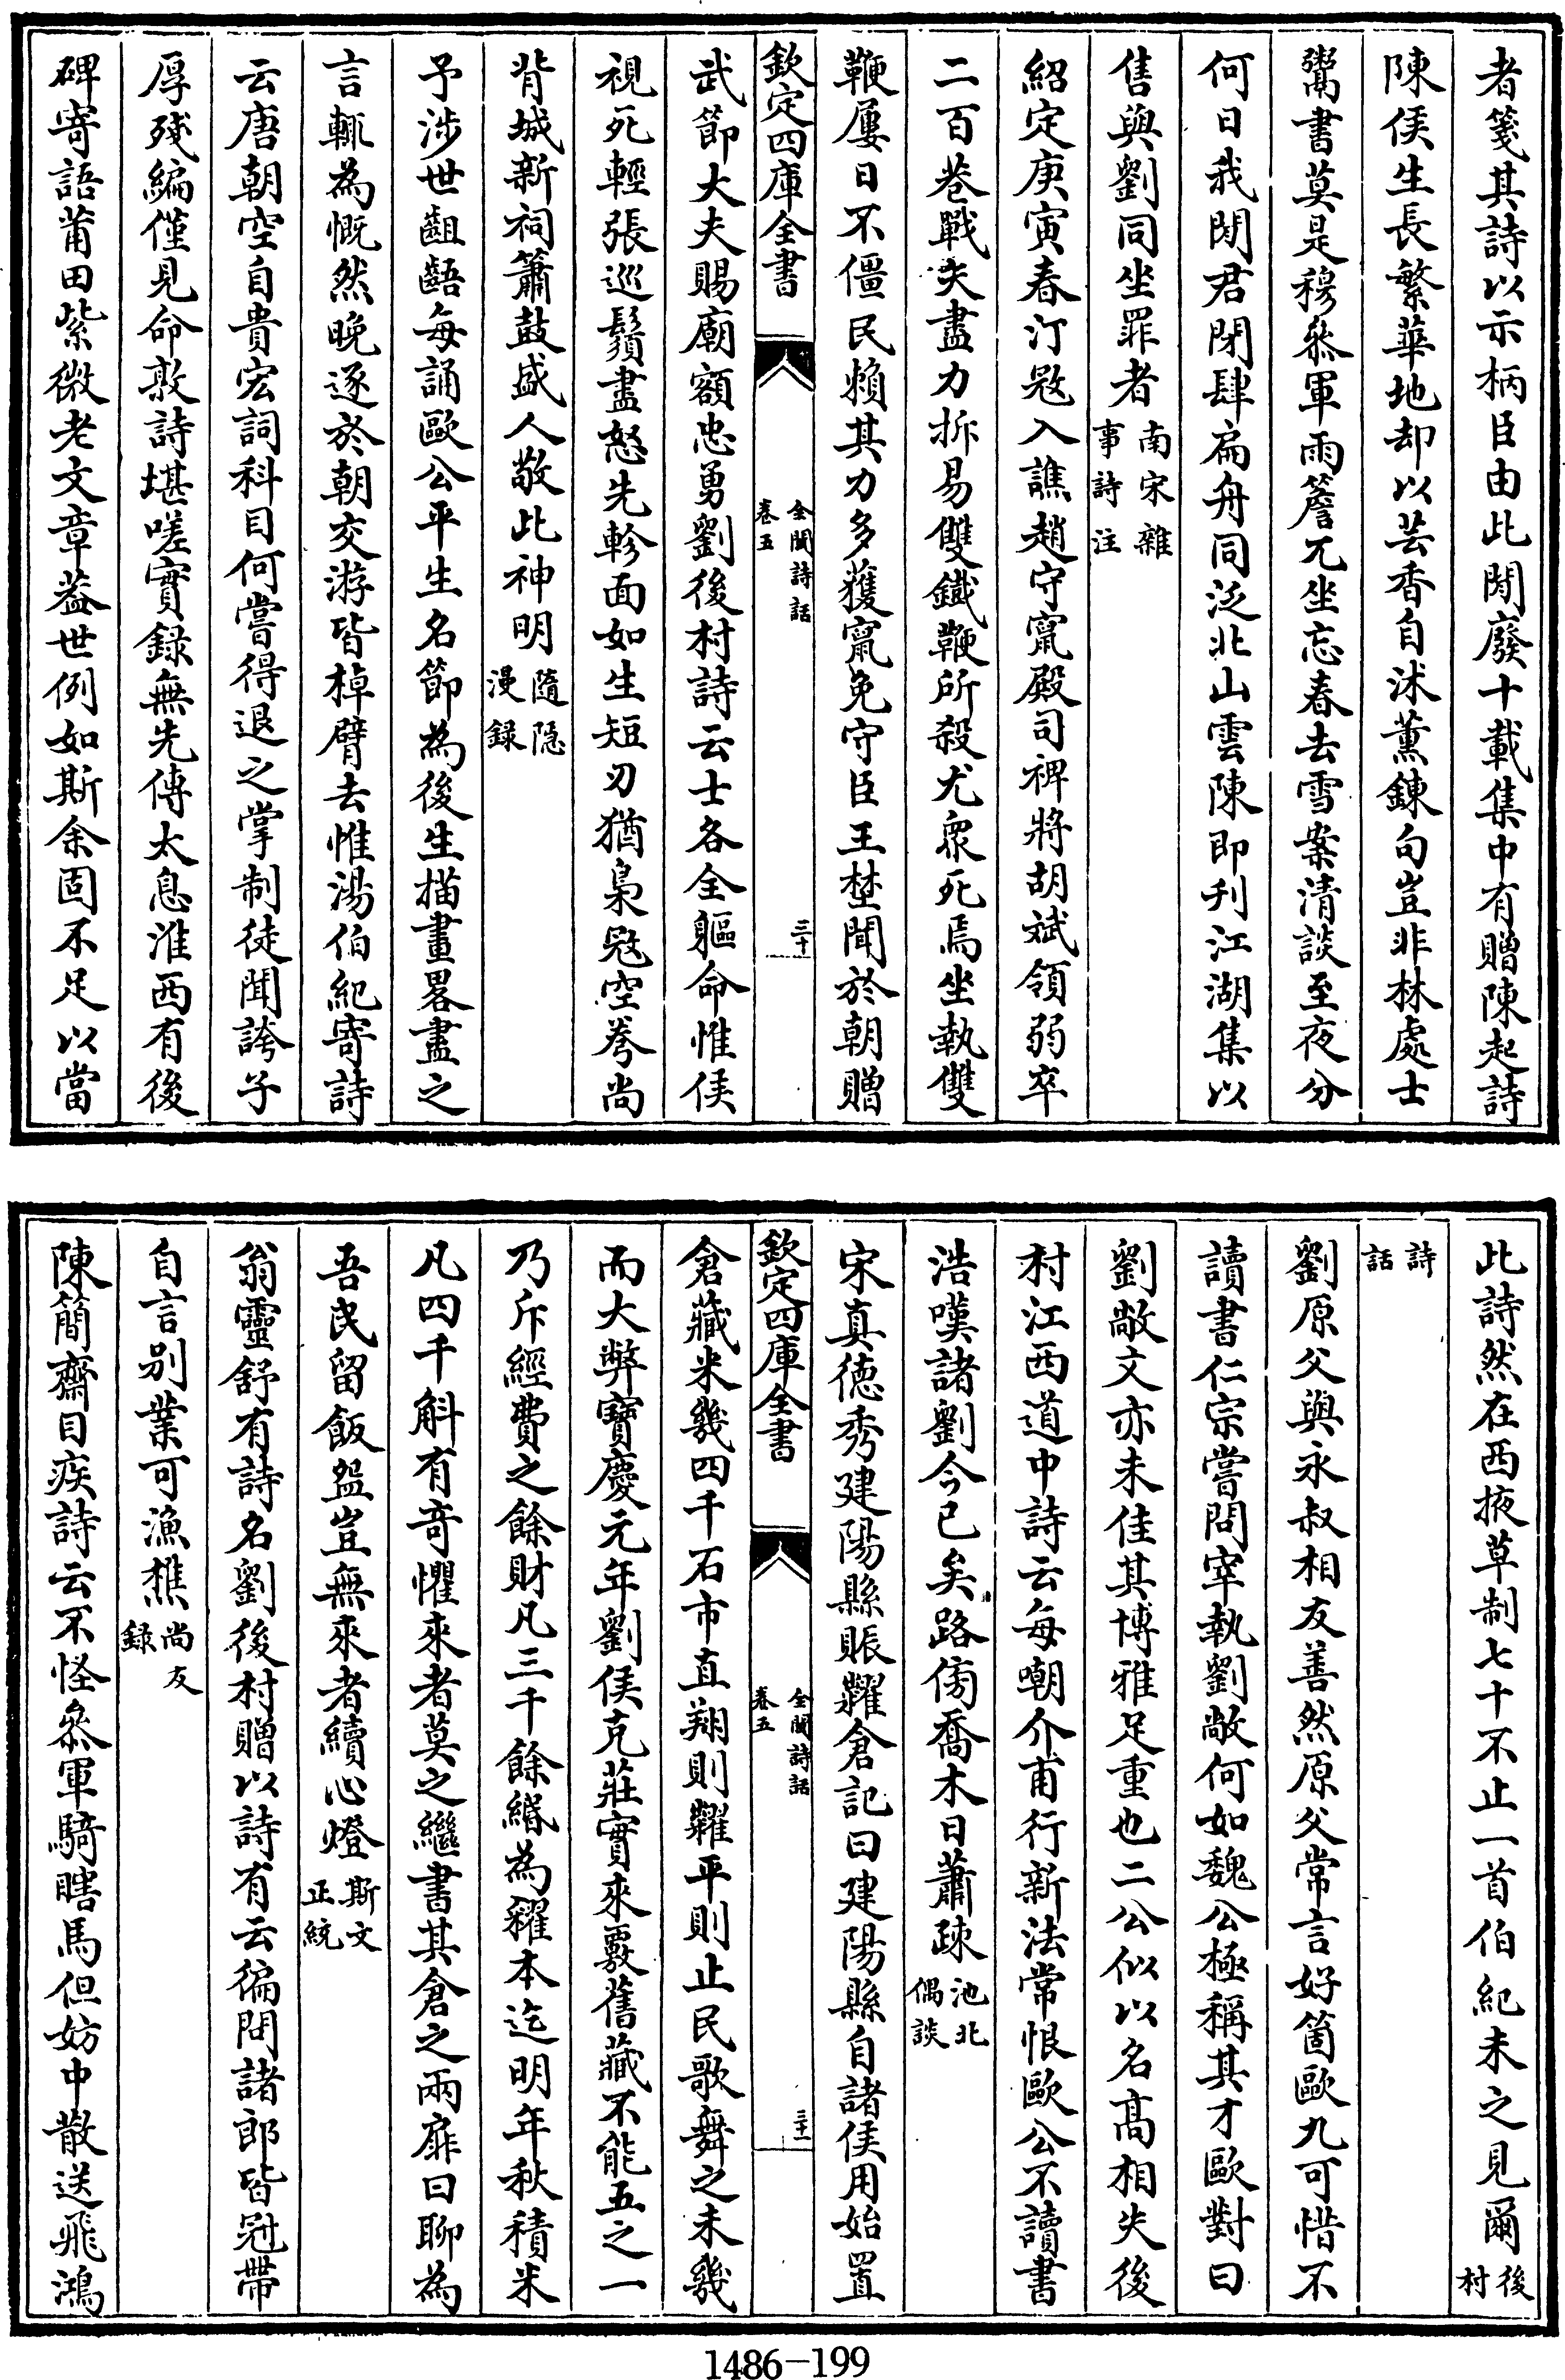 者箋其詩以示柄臣由此閒廢十載集中有贈陳起詩
陳侯生長繁華地却以芸香自沐薰鍊句豈非林處士
鬻書莫是穆叅軍雨簷兀坐忘春去雪案清談至夜分
何日我閒君閉肆扁舟同泛北山雲陳即刋江湖集以
售與劉同坐罪者南宋雜事詩注
紹定庚寅春汀㓂入譙趙守竄殿司裨將胡斌領弱卒
二百巷戰矢盡力拆易雙鐵鞭所殺尤衆死焉坐執雙
鞭屢日不僵民賴其力多獲竄免守臣王埜聞於朝贈
欽定四庫全書
全閩詩話
卷五
三十
武節大夫賜廟額忠勇劉後村詩云士各全軀命惟侯
視死輕張巡鬚盡怒先軫面如生短刃猶梟㓂空弮尚
背城新祠簫鼓盛人敬此神明隨隱漫録
予涉世齟齬每誦歐公平生名節為後生描畫畧盡之
言輒為慨然晚逐於朝交游皆棹臂去惟湯伯紀寄詩
云唐朝空自貴宏詞科目何嘗得退之掌制徒聞誇子
厚殘編僅見命敦詩堪嗟實録無先傳太息淮西有後
碑寄語莆田紫微老文章葢世例如斯余固不足以當
此詩然在西掖草制七十不止一首伯紀未之見爾後村
詩話
劉原父與永叔相友善然原父常言好箇歐九可惜不
讀書仁宗嘗問宰執劉敞何如魏公極稱其才歐對曰
劉敞文亦未佳其博雅足重也二公似以名髙相失後
村江西道中詩云每嘲介甫行新法常恨歐公不讀書
浩嘆諸劉今已矣路傍喬木日蕭疎池北偶談
宋真徳秀建陽縣賑糶倉記曰建陽縣自諸侯用始置
欽定四庫全書
全閩詩話
卷五
三十一
倉藏米幾四千石市直翔則糶平則止民歌舞之未幾
而大弊寶慶元年劉侯克莊實來覈舊藏不能五之一
乃斥經費之餘財凡三千餘緡為糴本迄明年秋積米
凡四千斛有竒懼來者莫之繼書其倉之兩扉曰聊為
吾民留飯盌豈無來者續心燈斯文正統
翁靈舒有詩名劉後村贈以詩有云徧問諸郎皆冠帶
自言别業可漁樵尚友録
陳簡齋目疾詩云不怪叅軍騎瞎馬但妨中散送飛鴻
1486—199